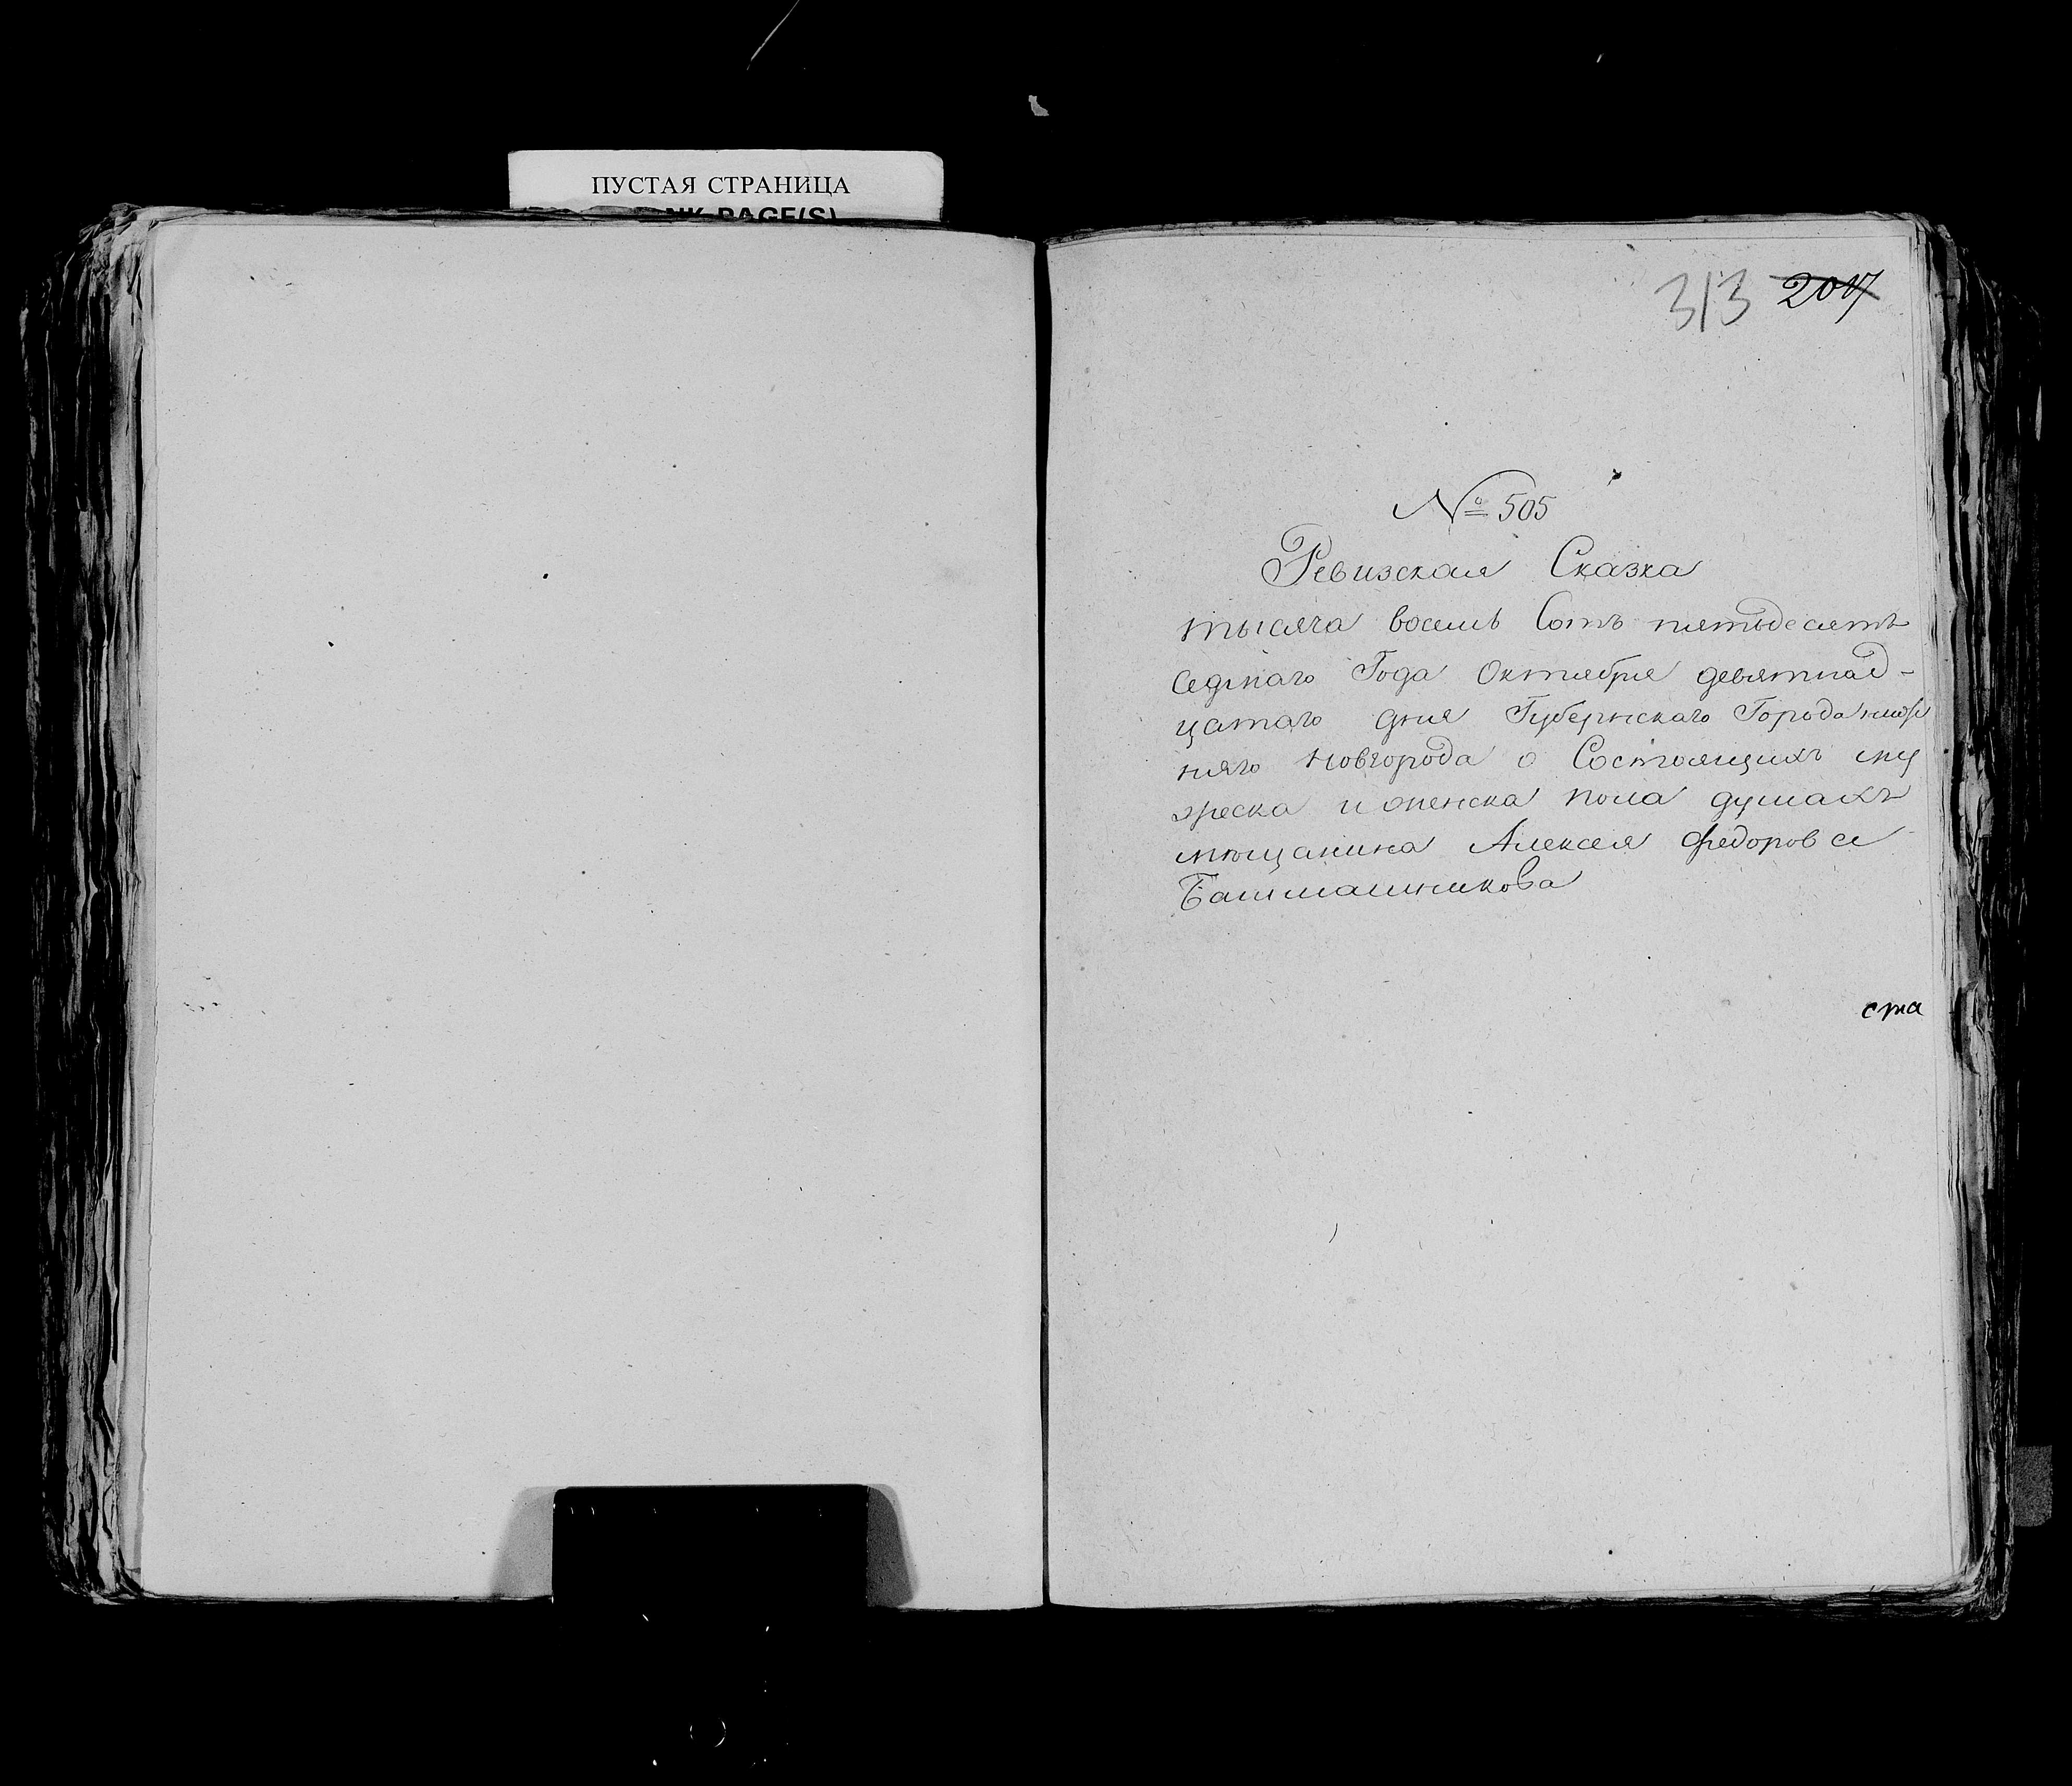 ПУСТАЯ СТРАНИЦА
NK PAGE(S)
313 2017
№ 505
Ревизская Сказка
тысяча восемь Сотъ пятьдесятъ
седмаго Года Октября девятнад-
цатаго дня Губернскаго Города ниж
няго Новгорода о Состоящихъ му
жеска и женска пола душахъ
мещанина Алексея Федорова
Башмашникова
ста